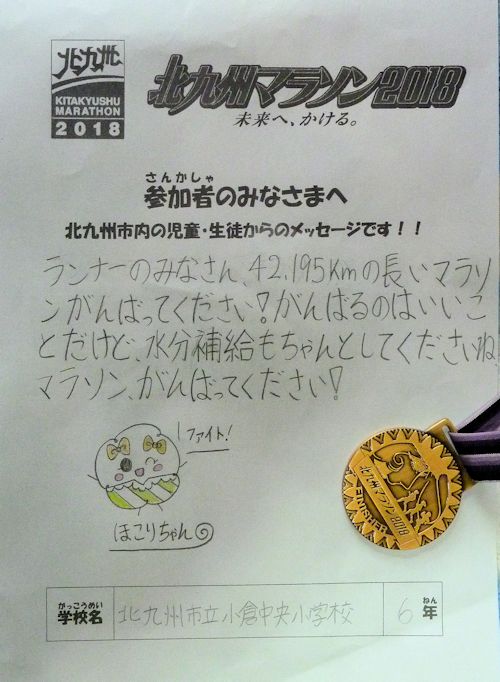 北九州
KITAKYUSHU
MARATHON
2018
北九州マラソン2018
未来へ、かける。
さんかしゃ
参加者のみなさまへ
北九州市内の児童・生徒からのメッセージです！！
ランナーのみなさん、42.195Kmの長いマラソ
ンがんばってください!がんばるのはいいこ
とだけど、水分補給もちゃんとしてくださいね
マラソン、がんばってください!
ファイト!
ほこりちゃん
北九州マラソン2018
FINISHER
がっこうめい
学校名
北九州市立小倉中央小学校
6
ねん
年